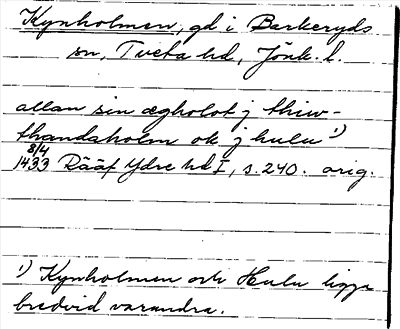 Kynholmen, gd i Barkeryds
sn, Tveta hd, Jönk. l.
allan sin ægholot j thiw-
thandaholm ok j hulu 1)
8/4
1433 Rääf Ydre hd I, s. 240. orig.
1) Kynholmen och Hulu ligga
bredvid varandra.